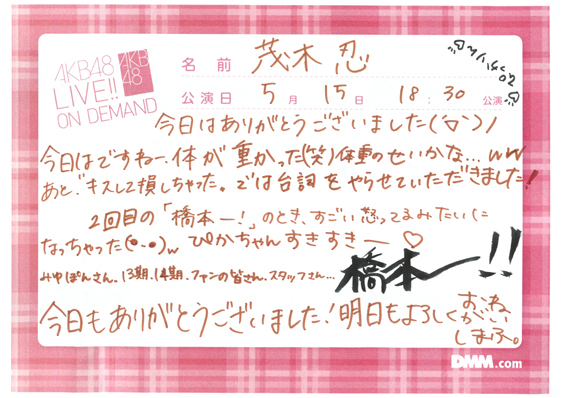 AKB48
LIVE!!
ON DEMAND
AKB
48
名前 茂木 忍
公演日 5月 15日 18:30 公演
今日はありがとうございました(´▽`)ノ
今日はですねー、体が重かった(笑)体重のせいかな…ww
あと、キスして損しちゃった。では台詞をやらせていただきました!
2回目の「橋本ー!」のとき、すごい怒ってるみたいに
なっちゃった(•-•)w ぴかちゃんすきすきー♡
みゆぽんさん、13期、14期、ファンの皆さん、スタッフさん…
橋本ー!!
今日もありがとうございました!明日もよろしく
おねがいしまふ。
DMM.com